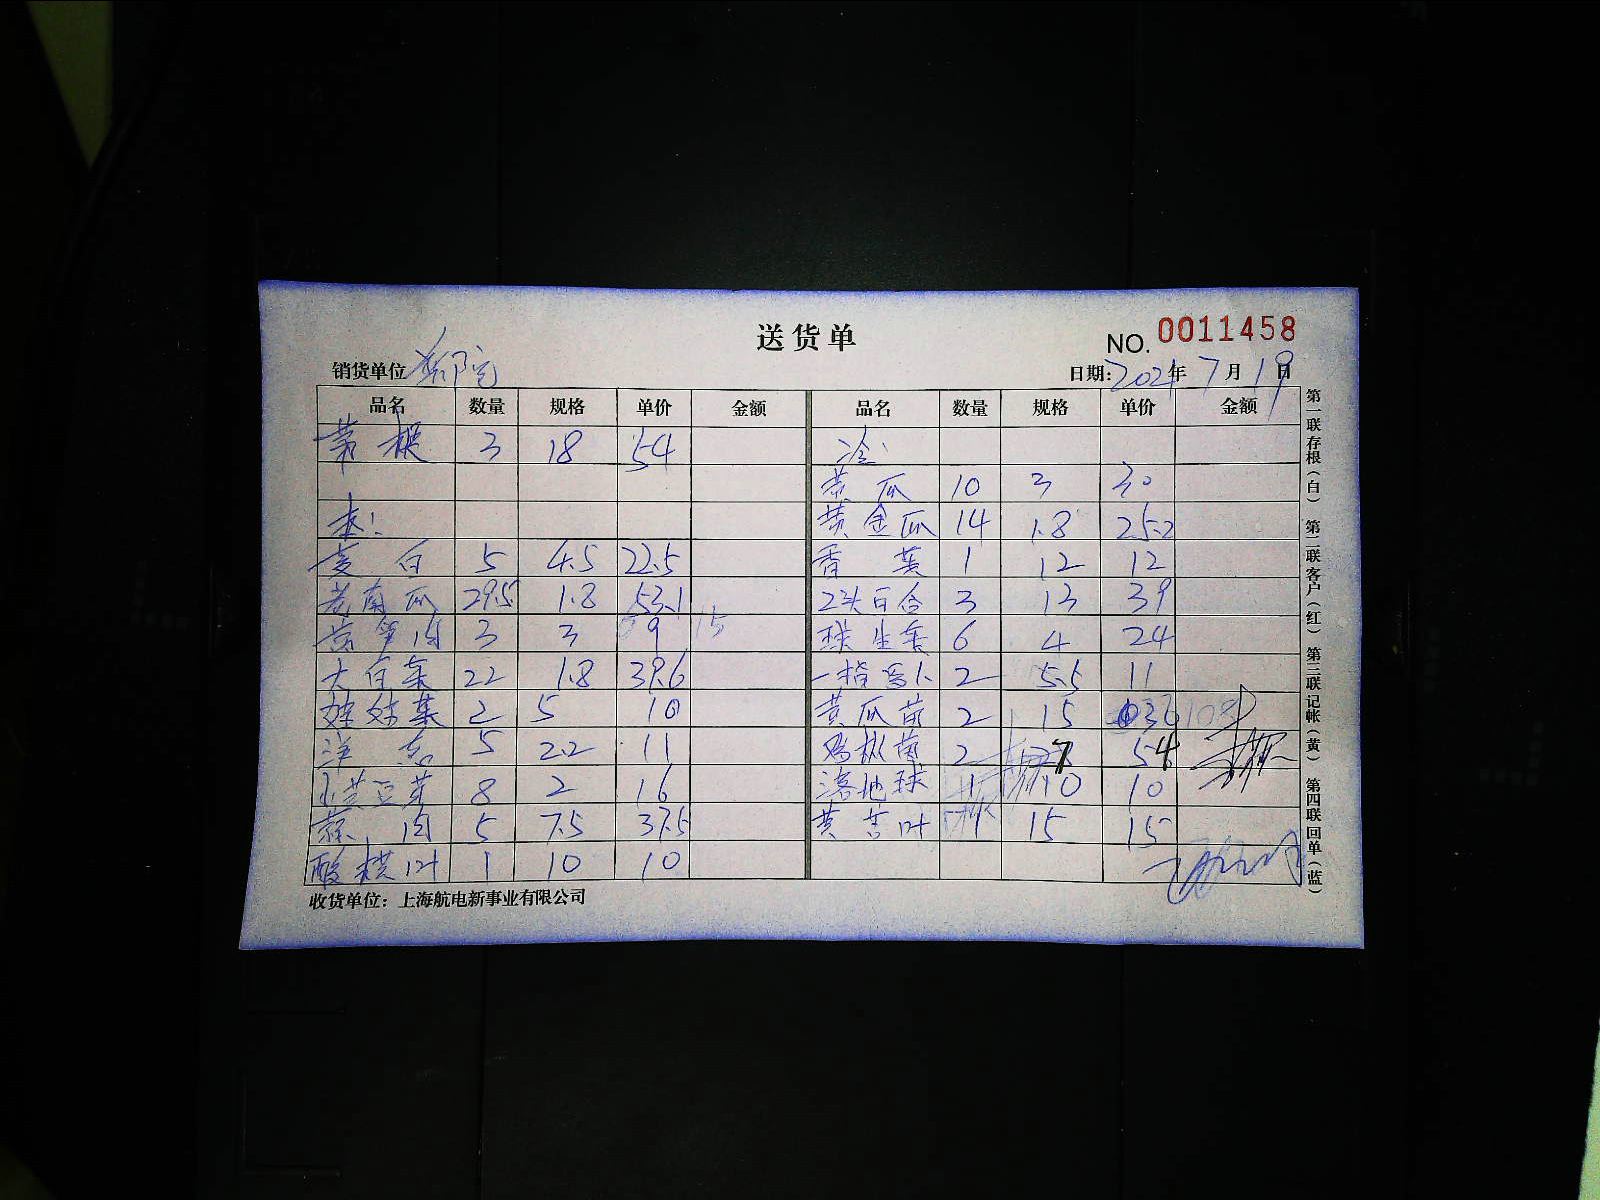 送货单
NO. 0011458
销货单位
日期: 2021年7月19日
品名 数量 规格 单价 金额 品名 数量 规格 单价 金额
茅根 3 18 54 冷:
黄瓜 10 3 30
本: 黄金瓜 14 1.8 25.2
茭白 5 4.5 22.5 香菜 1 12 12
老南瓜 29.5 1.8 53.1 2头百合 3 13 39
莴笋肉 3 3 9 15 球生菜 6 4 24
大白菜 22 1.8 39.6 2 5.5 11
娃娃菜 2 5 10 黄瓜苗 2 15
洋葱 5 2.2 11 鸡枞菌 2 27 54
小黄豆芽 8 2 16 落地球 1 10 10
蒜肉 5 7.5 37.5 黄苦叶 1 15 15
酸模叶 1 10 10
收货单位：上海航电新事业有限公司
第一联存根（白） 第二联客户（红） 第三联记帐（黄） 第四联回单（蓝）